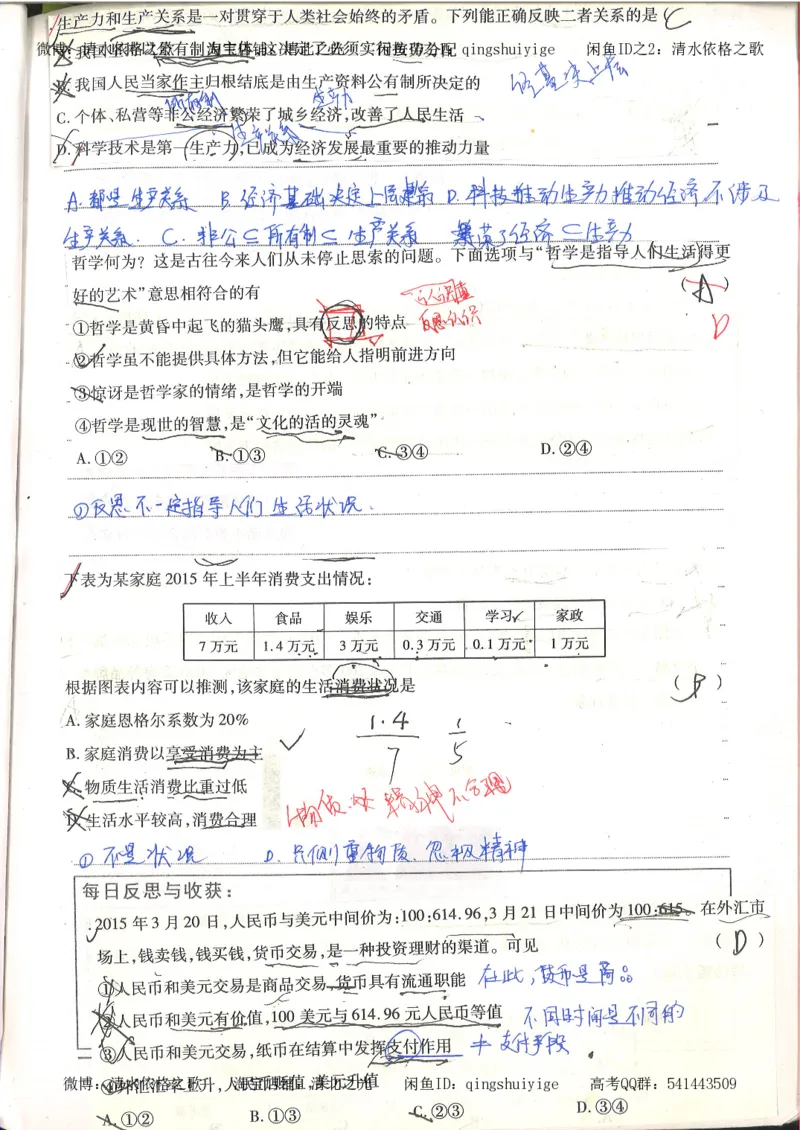 生产力和生产关系是一对贯穿于人类社会始终的矛盾。下列能正确反映二者关系的是 C
闲鱼ID之2：清水依格之歌
B.我国人民当家作主归根结底是由生产资料公有制所决定的
C.个体、私营等非公经济繁荣了城乡经济,改善了人民生活
D.科学技术是第一生产力,已成为经济发展最重要的推动力量
A.都是生产关系 B.经济基础决定上层建筑 D.科技推动生产力推动经济不涉及
生产关系. C.非公⊆所有制⊆生产关系 繁荣了经济⊂生产力
哲学何为？这是古往今来人们从未停止思索的问题。下面选项与“哲学是指导人们生活得更
好的艺术”意思相符合的有 (A)
D
①哲学是黄昏中起飞的猫头鹰,具有反思的特点
②哲学虽不能提供具体方法,但它能给人指明前进方向
③惊讶是哲学家的情绪,是哲学的开端
④哲学是现世的智慧,是“文化的活的灵魂”
A.①② B.①③ C.③④ D.②④
①反思不一定指导人们生活状况.
下表为某家庭2015年上半年消费支出情况：
收入 食品 娱乐 交通 学习 家政
7万元 1.4万元 3万元 0.3万元 0.1万元 1万元
根据图表内容可以推测,该家庭的生活消费状况是 (B)
A.家庭恩格尔系数为20%
1.4/7 1/5
B.家庭消费以享受消费为主
C.物质生活消费比重过低
D.生活水平较高,消费合理
①不是状况 D.只侧重物质、忽视精神
每日反思与收获：
2015年3月20日,人民币与美元中间价为:100:614.96,3月21日中间价为100:615。在外汇市
场上,钱卖钱,钱买钱,货币交易,是一种投资理财的渠道。可见 (D)
①人民币和美元交易是商品交易,货币具有流通职能 在此,货币是商品
②人民币和美元有价值,100美元与614.96元人民币等值 不同时间是不同的
③人民币和美元交易,纸币在结算中发挥支付作用 支付手段
微博：清水依格之歌 闲鱼ID：qingshuiyige 高考QQ群：541443509
A.①② B.①③ C.②③ D.③④